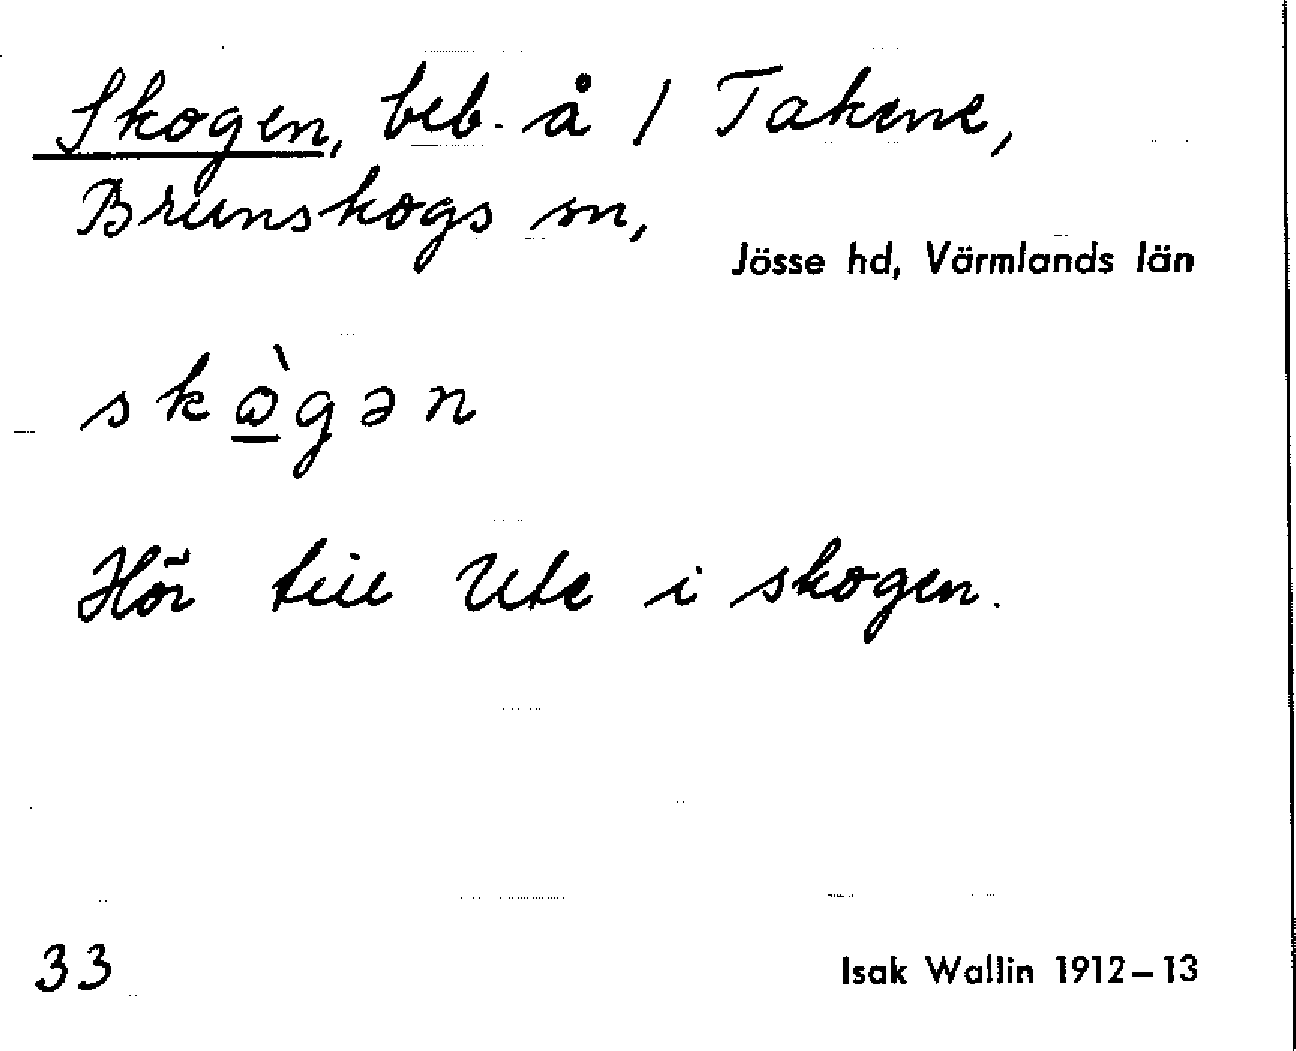 Skogen, beb. å 1 Takene,
Brunskogs sn,
Jösse hd, Värmlands län
skò̱gən
Hör till Ute i skogen.
33
Isak Wallin 1912–13